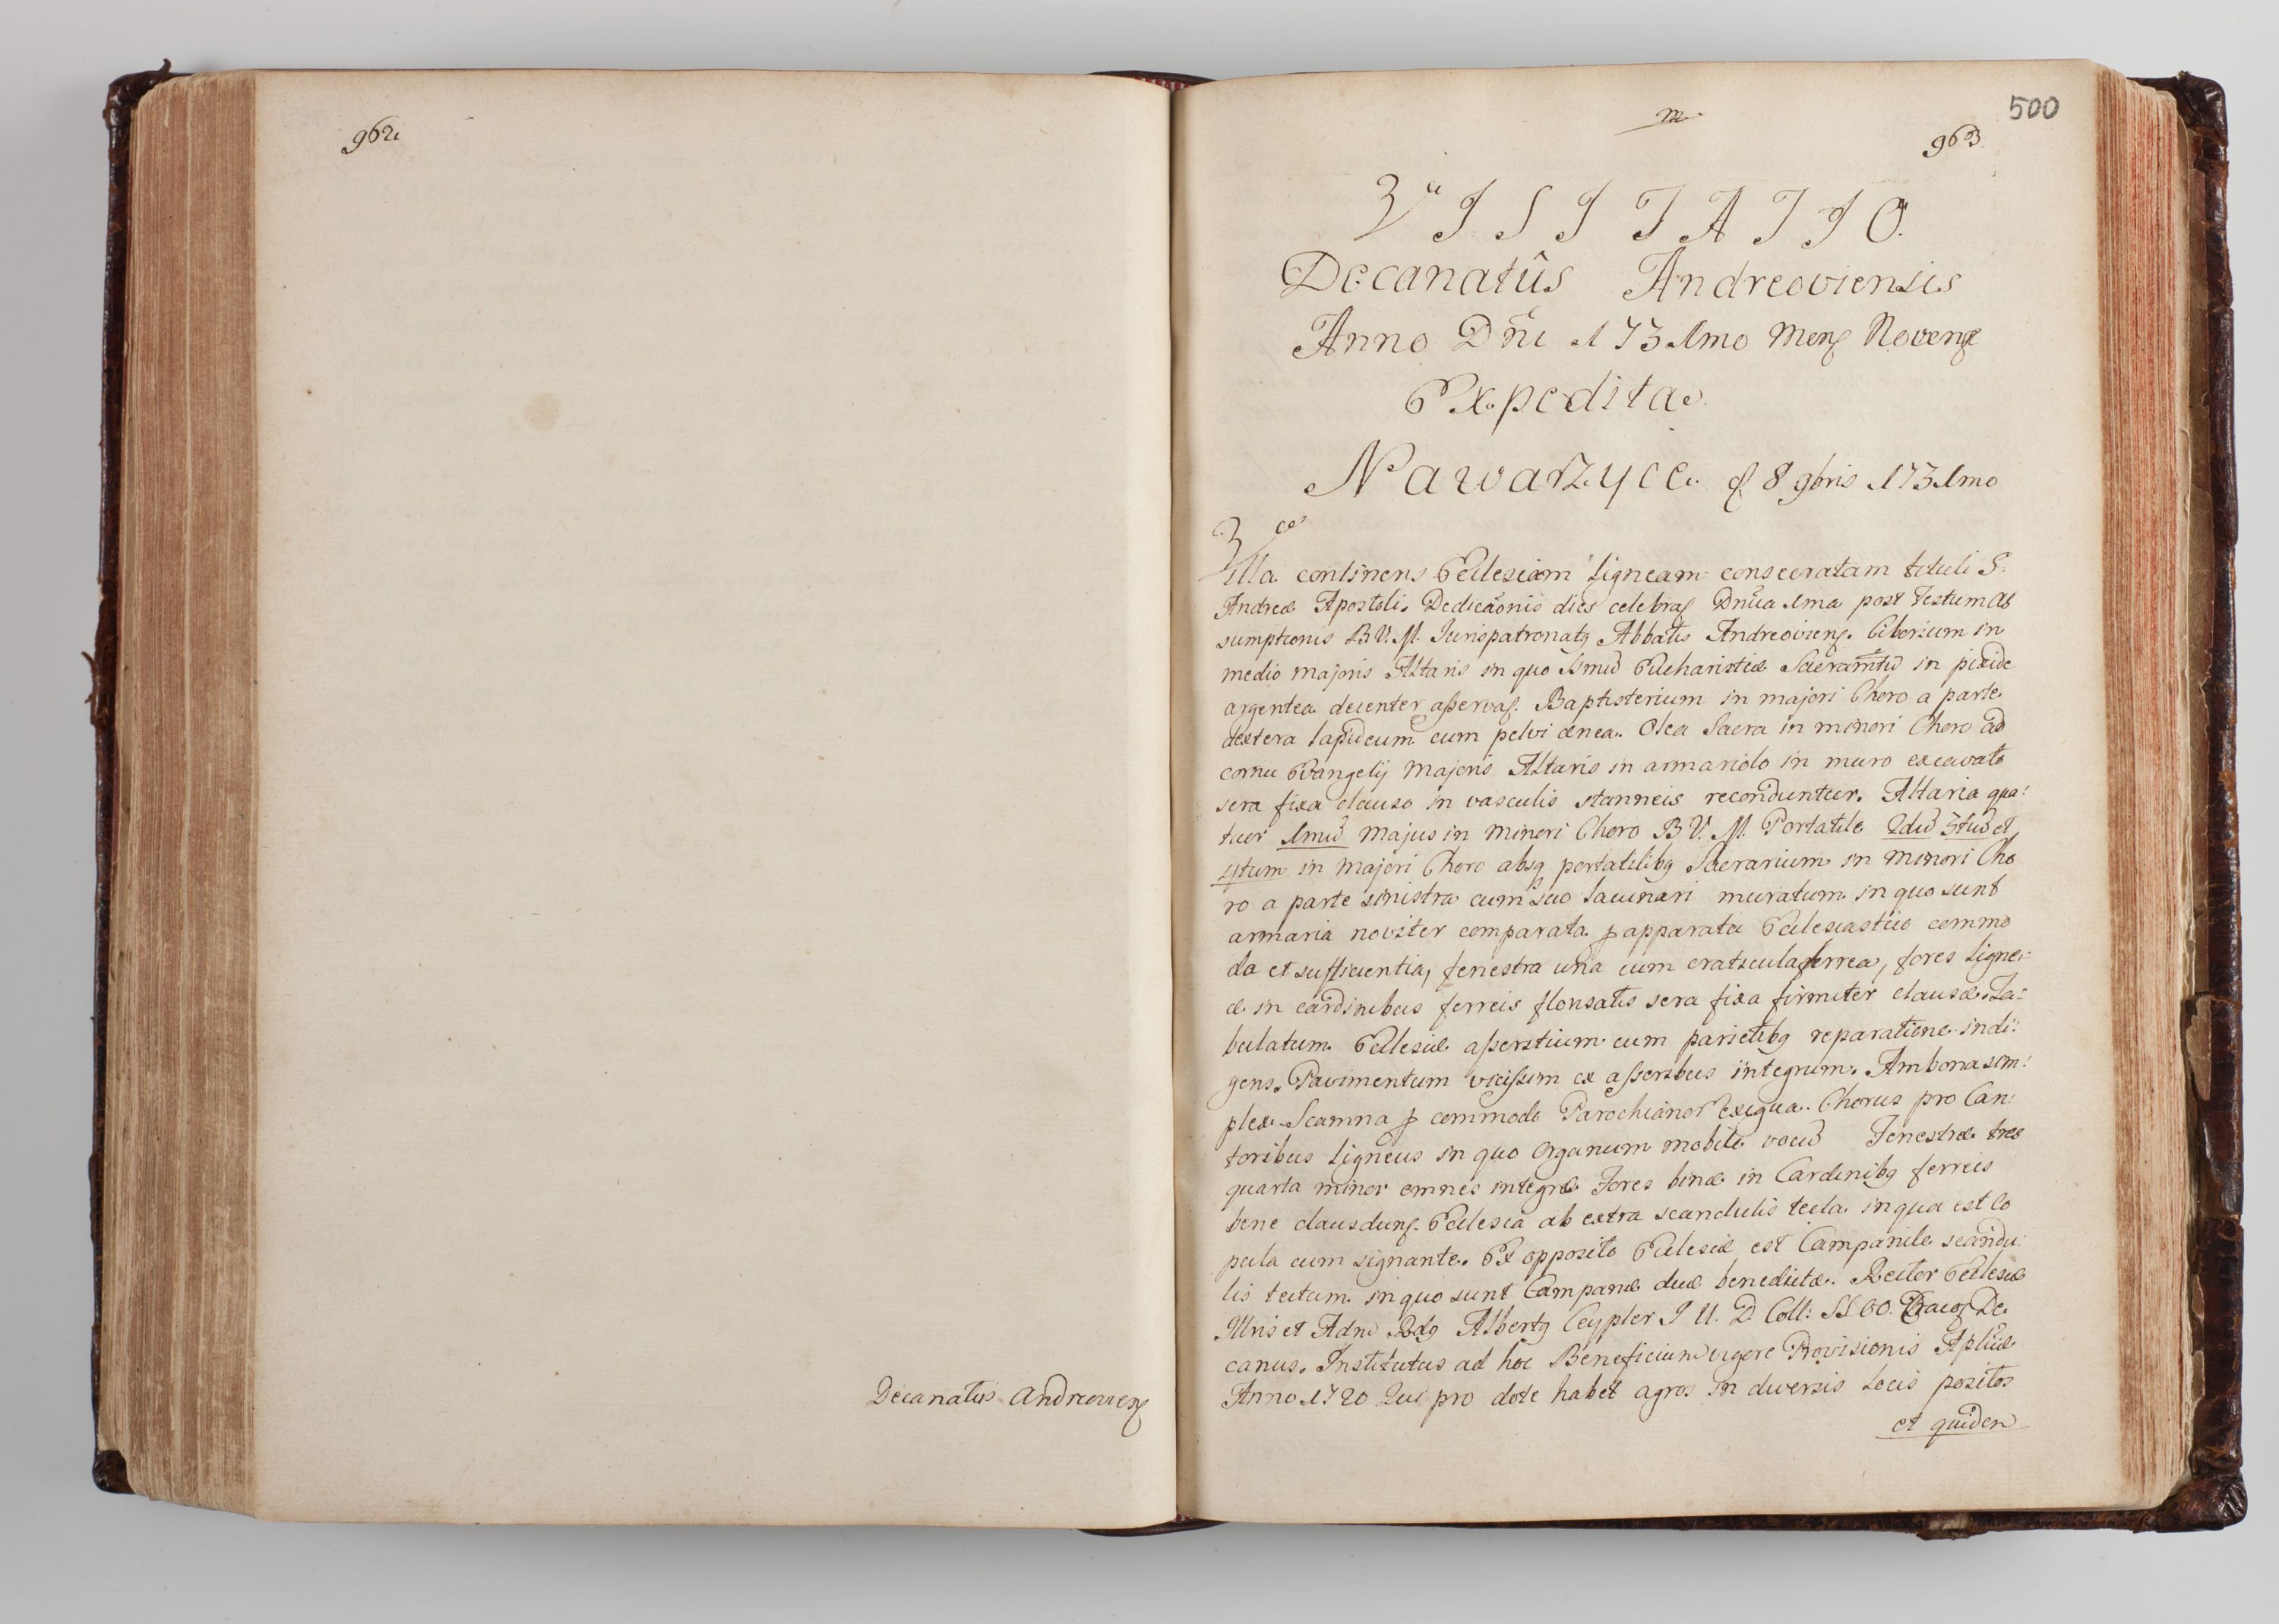 962.
Decanatus Andreovien̄
m
500
963.
VISITATIO
Decanatûs Andreoviensis
Anno Dñi 1731mo Mens Novens
Expedita.
Nawarzyce. d. 8 9bris 1731mo
Villa continens Ecclesiam Ligneam consecratam tituli S.
Andreæ Apostoli. Dedicãonis dies celebraȝ Dñica 1ma post Festum As
sumptionis B.V.M. Jurispatronatq Abbatis Andreovienȝ. Ciborium in
medio majoris Altaris in quo Ssmũ Eucharistiæ Sacramtũ in pixide
argentea decenter asservaȝ. Baptisterium in majori Choro a parte
dextera lapideum cum pelvi ænea. Olea Sacra in minori Choro ad
cornu Evangelij Majoris Altaris in armariolo in muro excavato
sera fixa clauso in vasculis stanneis reconduntur. Altaria qua:
tuor 1mũ Majus in Minori Choro B.V.M. Portatile 2dũ 3tiũ et
4tum in Majori Choro absq portatilibq Sacrarium in Minori Cho
ro a parte sinistra cum suo lacunari muratum in quo sunt
armaria noviter comparata p apparatu Ecclesiastico commo
da et sufficientia, fenestra una cum craticula ferrea, fores Ligne:
æ in cardinibus ferreis flonsatis sera fixa firmiter clausæ. Ta:
bulatum Ecclesiæ asserstium cum parietibq reparatione indi:
gens. Pavimentum vicissim ex asseribus integrum. Ambona sim:
plex. Scamna p commodo Parochianor exigua. Chorus pro Can:
toribus Ligneus in quo Organum mobile vocũ Fenestræ tres
quarta minor omnes integræ Fores binæ in Cardinibq ferreis
bene claudunȝ. Ecclesia ab extra scandulis tecta in qua est Co
pula cum signante. Ex opposito Ecclesiæ est Campanile scandu:
lis tectum in quo sunt Campanæ duæ benedictæ. Rector Ecclesiæ
Illris et Adm Rdq Albertq Ceypler J.U.D. Coll: SS OO. Cracoȝ De
canus. Institutus ad hoc Beneficium vigore Provisionis Aplicæ
Anno 1720 Qui pro dote habet agros in diversis Locis positos
et quidem